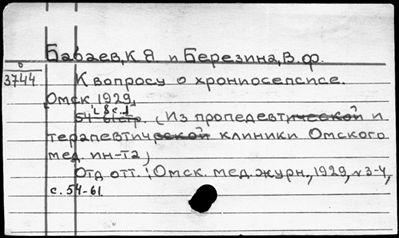 Бабаев, К Я и Березина, В. Ф.
3744
К вопросу о хрониосепсисе.
Омск, 1929,
54-61стр. (Из пропедевтической и
терапевтической клиники Омского
мед. ин-та)
Отд отт.: Омск. мед. журн, 1929, № 3-4,
с. 54-61.